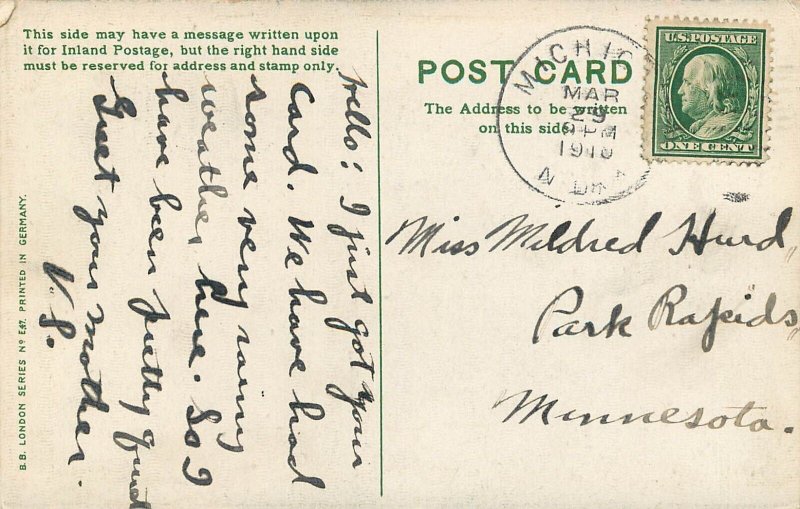 This side may have a message written upon
it for Inland Postage, but the right hand side
must be reserved for address and stamp only.
Hello: I just got your
card. We have had
some very rainy
weather here. So I
have been pretty quiet
Greet your mother.
V. S.
B.B. LONDON SERIES Nº E47. PRINTED IN GERMANY.
POST CARD
The Address to be written
on this side.
MICHIG
MAR
29
PM
1910
N DK
U.S. POSTAGE
ONE CENT
Miss Mildred Hurd,
Park Rapids,
Minnesota.